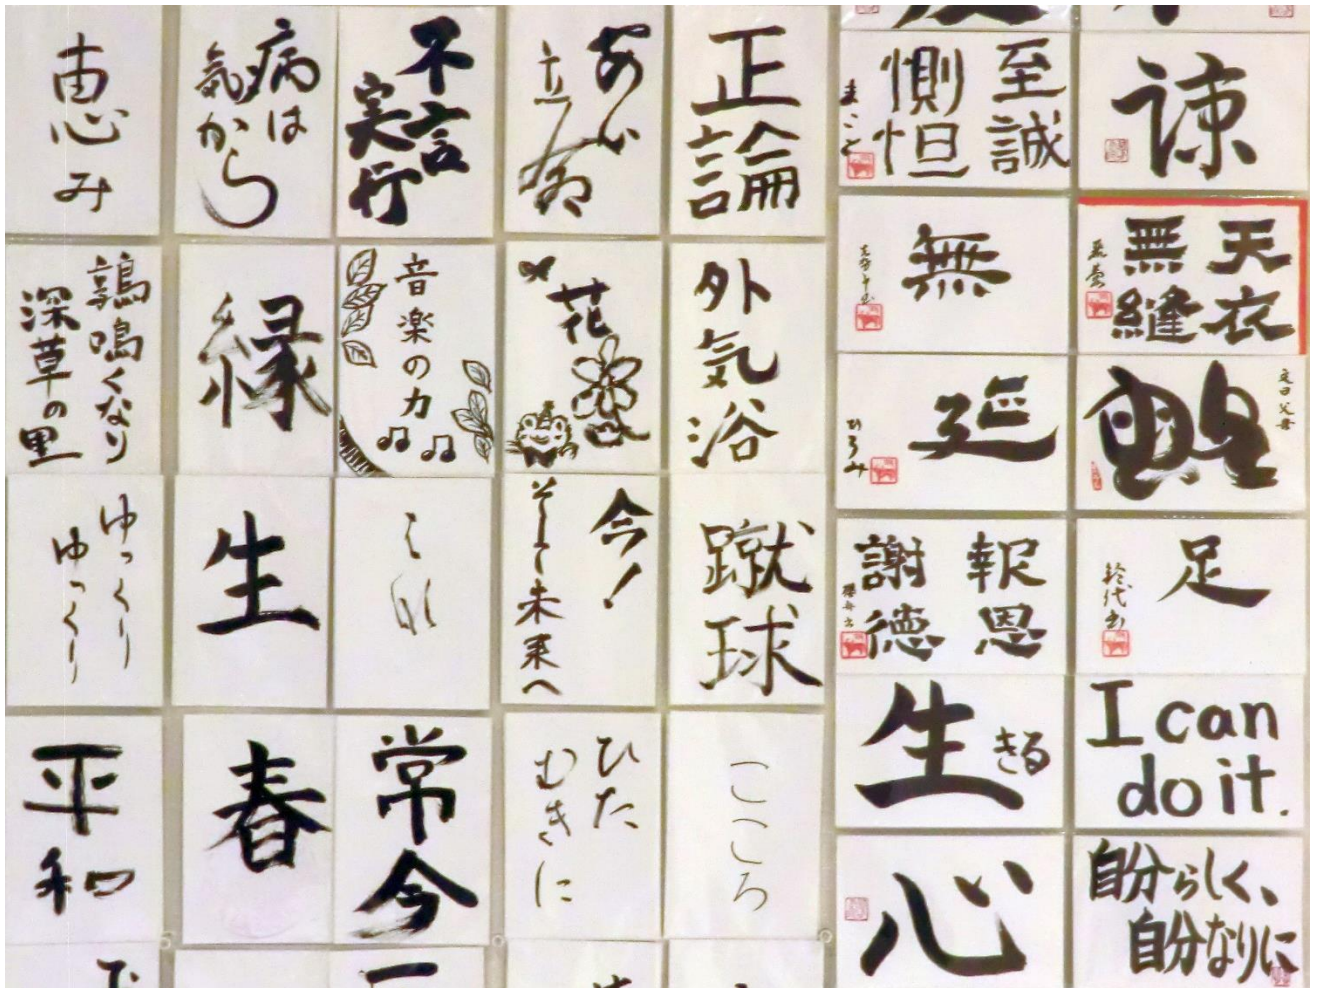 恵み
病は
気から
不言
実行
正論
至誠
惻怛
まこと
諒
鶉鳴くなり
深草の里
縁
音楽の力
花
外気浴
無
天衣
無縫
ゆっくり
ゆっくり
生
今!
そして未来へ
蹴球
延
ひろみ
報恩
謝徳
足
平和
春
常今
ひた
むきに
こころ
生きる
I can
do it.
心
自分らしく、
自分なりに